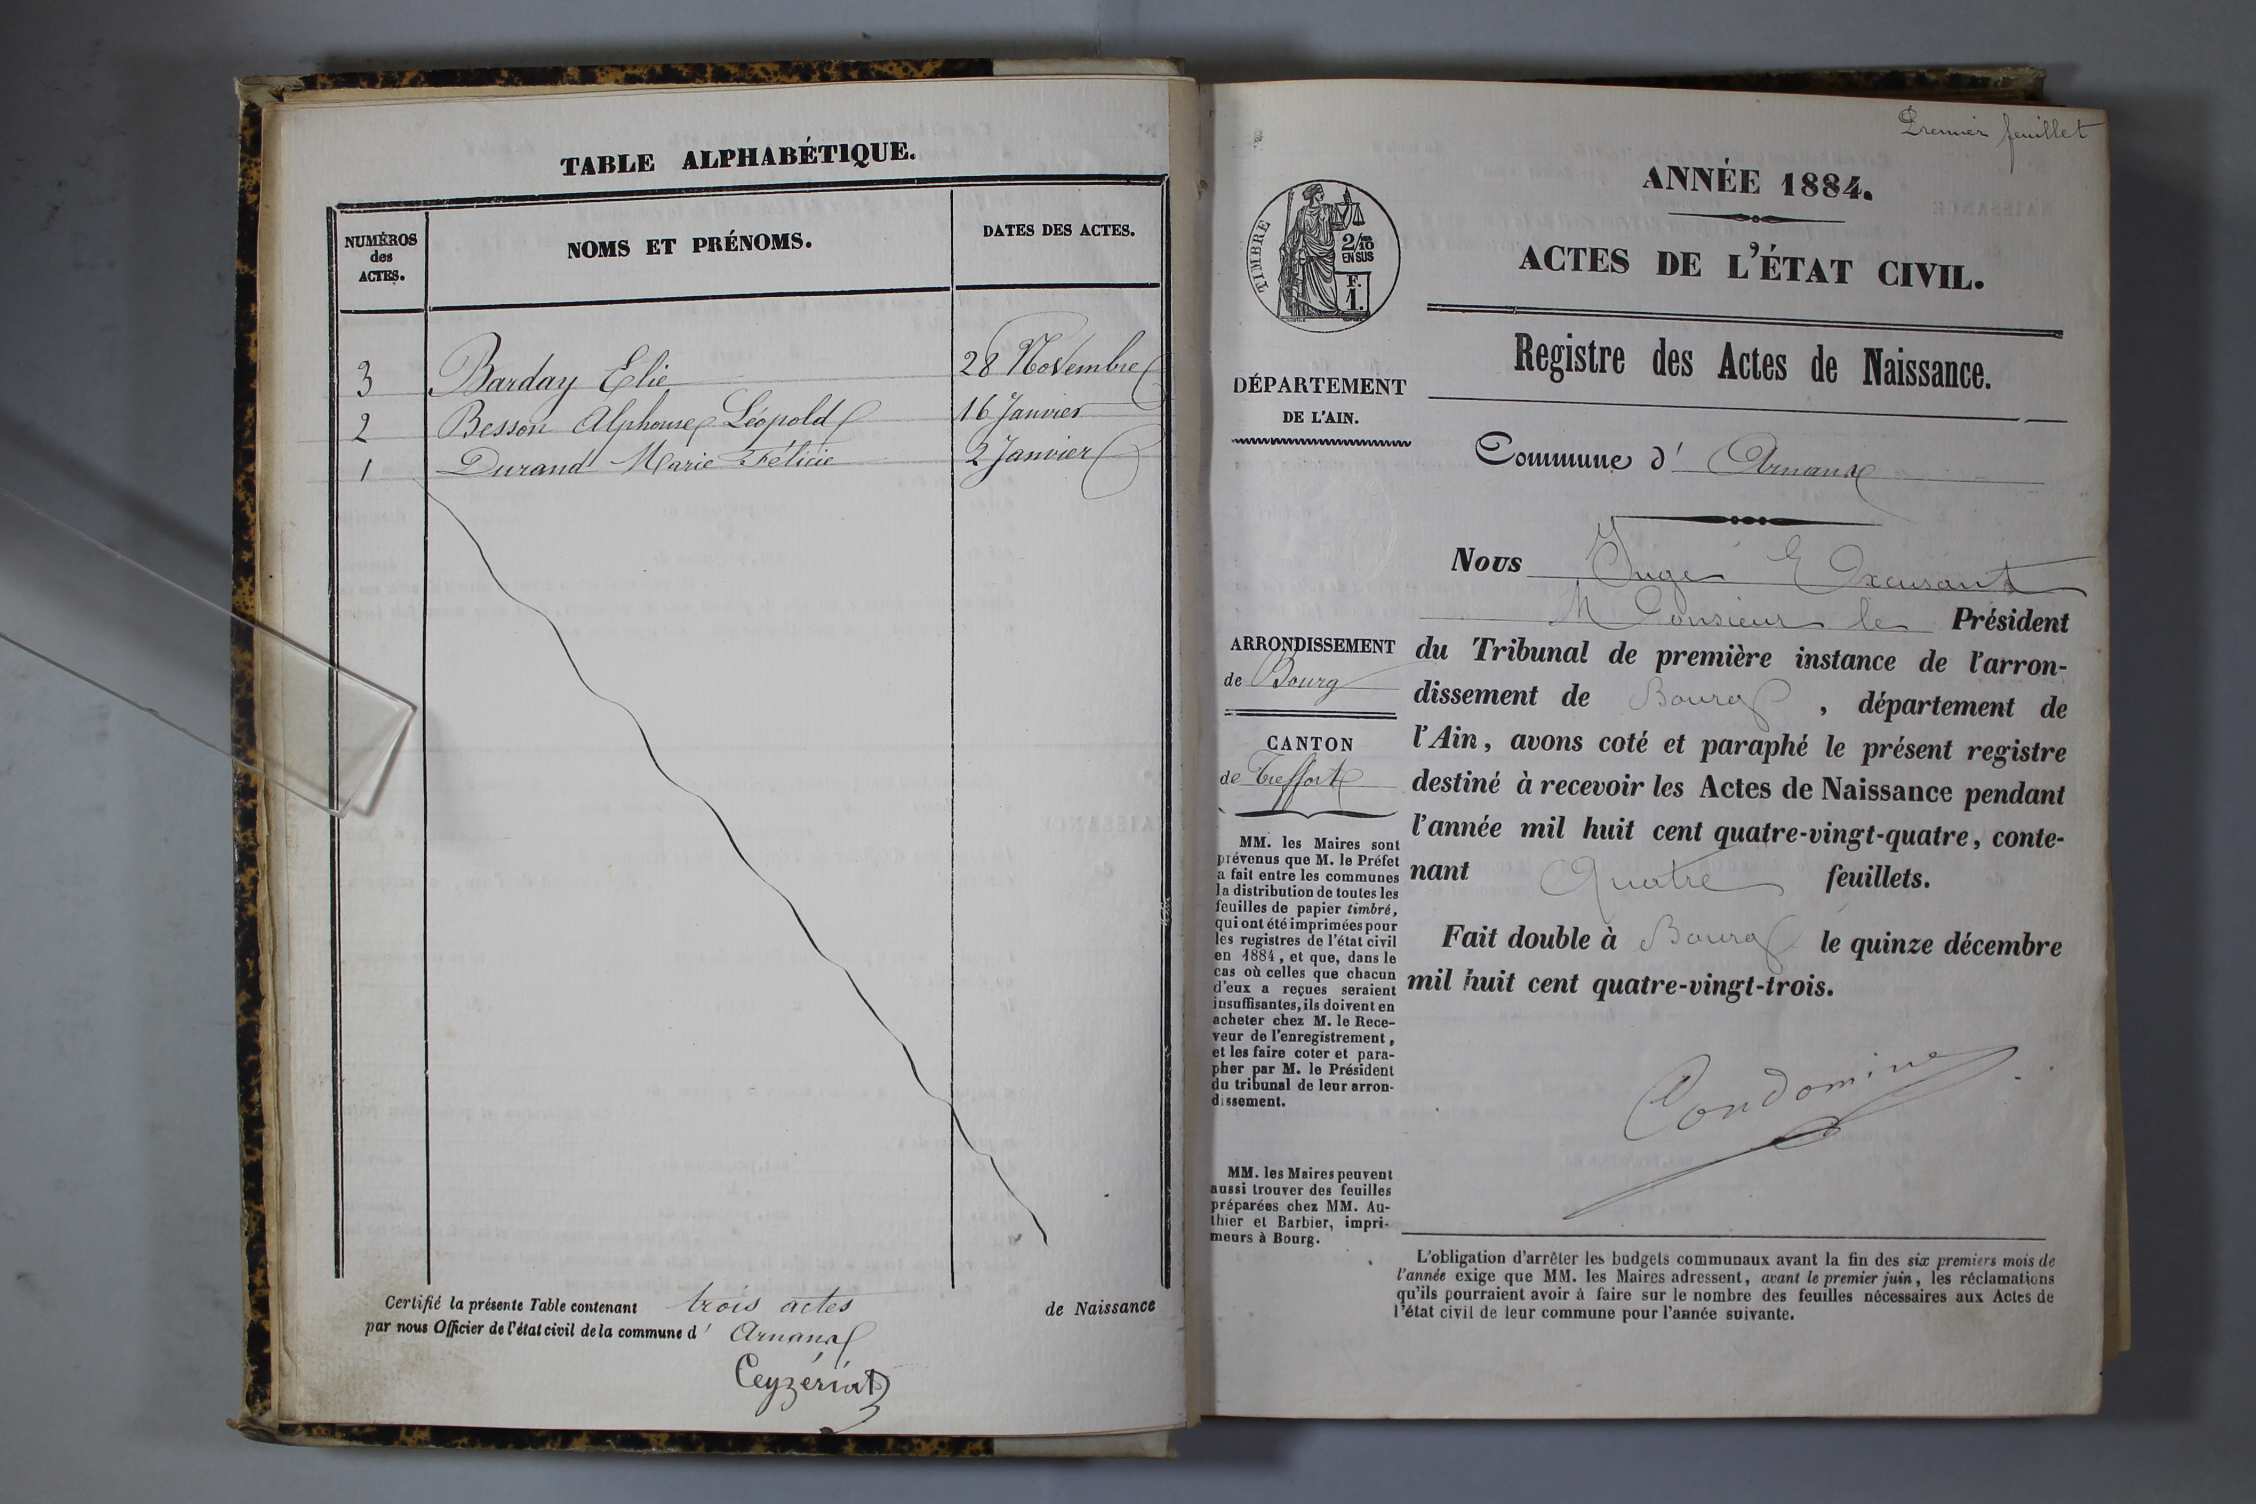 TABLE ALPHABÉTIQUE.
NUMÉROS
des
ACTES.
NOMS ET PRÉNOMS.
DATES DES ACTES.
3 Barday Elie 28 Novembre
2 Besson Alphonse Léopold 16 Janvier
1 Durand Marie Félicie 2 Janvier
Certifié la présente Table contenant trois actes de Naissance
par nous Officier de l'état civil de la commune d' Arnans
Ceyzériat
Premier feuillet
ANNÉE 1884.
ACTES DE L'ÉTAT CIVIL.
Registre des Actes de Naissance.
TIMBRE
2/10
EN SUS
F.
1.
DÉPARTEMENT
DE L'AIN.
Commune d' Arnans
Nous Juge Excusant
Monsieur le Président
du Tribunal de première instance de l'arron-
dissement de Bourg, département de
l'Ain, avons coté et paraphé le présent registre
destiné à recevoir les Actes de Naissance pendant
l'année mil huit cent quatre-vingt-quatre, conte-
nant Quatre feuillets.
Fait double à Bourg le quinze décembre
mil huit cent quatre-vingt-trois.
Condomine
ARRONDISSEMENT
de Bourg
CANTON
de Treffort
MM. les Maires sont
prévenus que M. le Préfet
a fait entre les communes
la distribution de toutes les
feuilles de papier timbré,
qui ont été imprimées pour
les registres de l'état civil
en 1884, et que, dans le
cas où celles que chacun
d'eux a reçues seraient
insuffisantes, ils doivent en
acheter chez M. le Rece-
veur de l'enregistrement,
et les faire coter et para-
pher par M. le Président
du tribunal de leur arron-
dissement.
MM. les Maires peuvent
aussi trouver des feuilles
préparées chez MM. Au-
thier et Barbier, impri-
meurs à Bourg.
L'obligation d'arrêter les budgets communaux avant la fin des six premiers mois de
l'année exige que MM. les Maires adressent, avant le premier juin, les réclamations
qu'ils pourraient avoir à faire sur le nombre des feuilles nécessaires aux Actes de
l'état civil de leur commune pour l'année suivante.